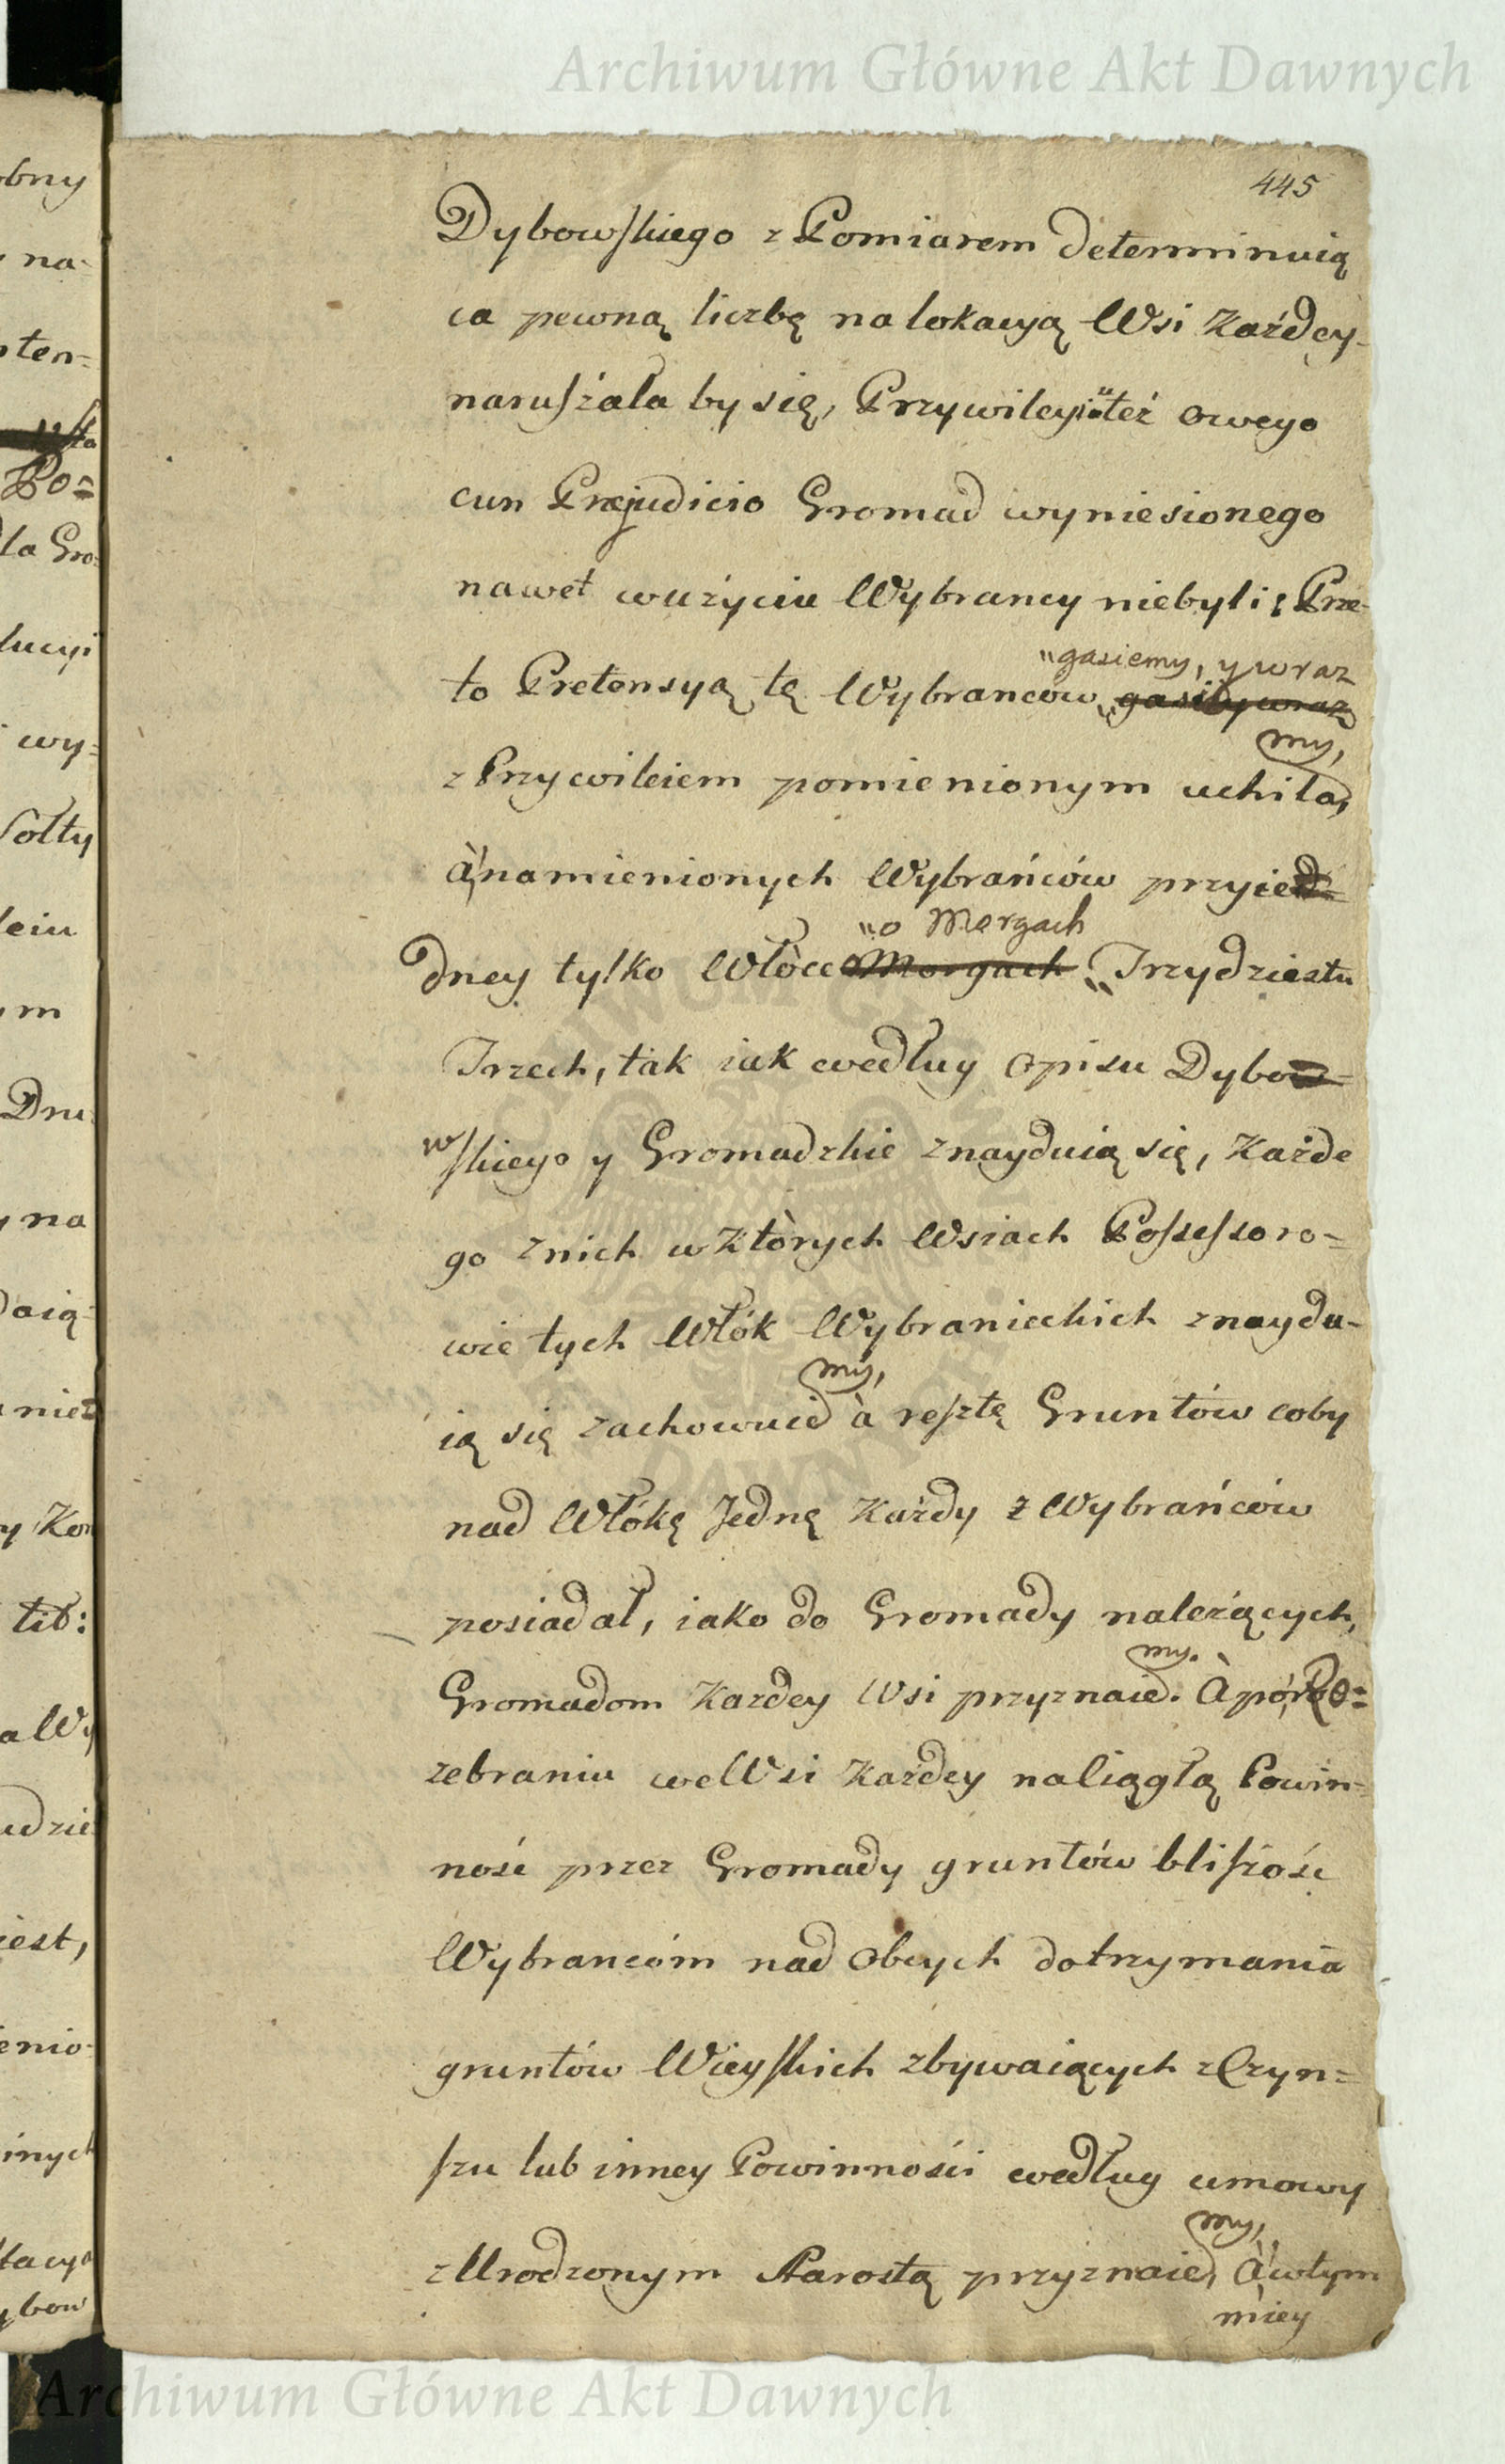 Archiwum Główne Akt Dawnych
445
Dybowskiego z Pomiarem determinuią
ca pewną liczbę na lokacyą Wsi każdey
naruszała by się, Przywileyiu też owego
cun Præjudicio Gromad wyniesionego
nawet wużyciu Wybrancy niebyli; Prze-
gasiemy, y wraz
to Pretensyą tę Wybrancow
my,
z Przywileiem pomienionym uchila,
à namienionych Wybrańców przyie
o Morgach
dney tylko Włòce Morgach Trzydziestu
Trzech, tak iak według Opisu Dybow=
wskiego y Gromadzkie znayduią się, każde
go znich w ktòrych Wsiach Possessoro=
wie tych Włók Wybranieckich znaydu-
my,
ią się zachowuie à resztę Gruntów coby
nad Włókę Jednę każdy z Wybrańców
posiadał, iako do Gromady należących,
my.
Gromadom każdey Wsi przyznaie. À po Ro=
zebraniu we Wsi każdey naliągłą Powin-
ność przez Gromady gruntów bliszość
Wybrancóm nad Obcych do trzymania
gruntów Wieyskich zbywaiących z Czyn=
szu lub inney Powinności według umowy
my,
z Urodzonym Starostą przyznaie, À wtym
miey
obny
na-
ten=
Po=
la Gro
lucyi
wy=
Sołty
leiu
m
Dru
na
daią
nie
y Kon
tit:
a Wy
udzie
iest,
enio-
inych
tacya
ybow
Archiwum Główne Akt Dawnych